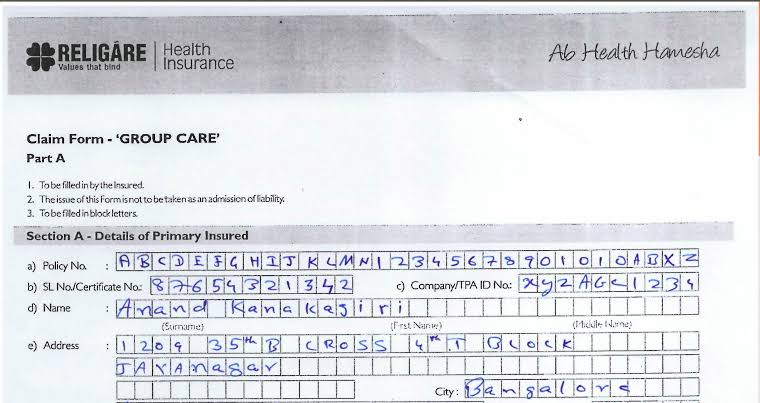 RELIGARE Health
Values that bind Insurance
Ab Health Hamesha
Claim Form - 'GROUP CARE'
Part A
1. To be filled in by the Insured.
2. The issue of this Form is not to be taken as an admission of liability.
3. To be filled in block letters.
Section A - Details of Primary Insured
a) Policy No. : ABCDEFGHIJKLMN12345678901010ABXZ
b) SL No./Certificate No.: 87654321342 c) Company/TPA ID No.: XYZAGC1234
d) Name : Anand Kanakagiri
(Surname) (First Name) (Middle Name)
e) Address : 1209 35th B CROSS 4th T BLOCK
JAYAnagar
City : Bangalore